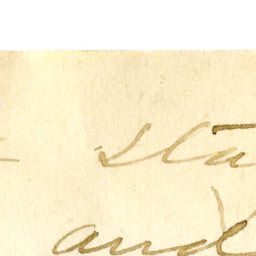 sta
and